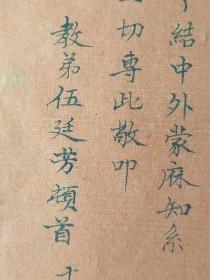 結中外蒙麻知系
切專此敬叩
教弟伍廷芳頓首